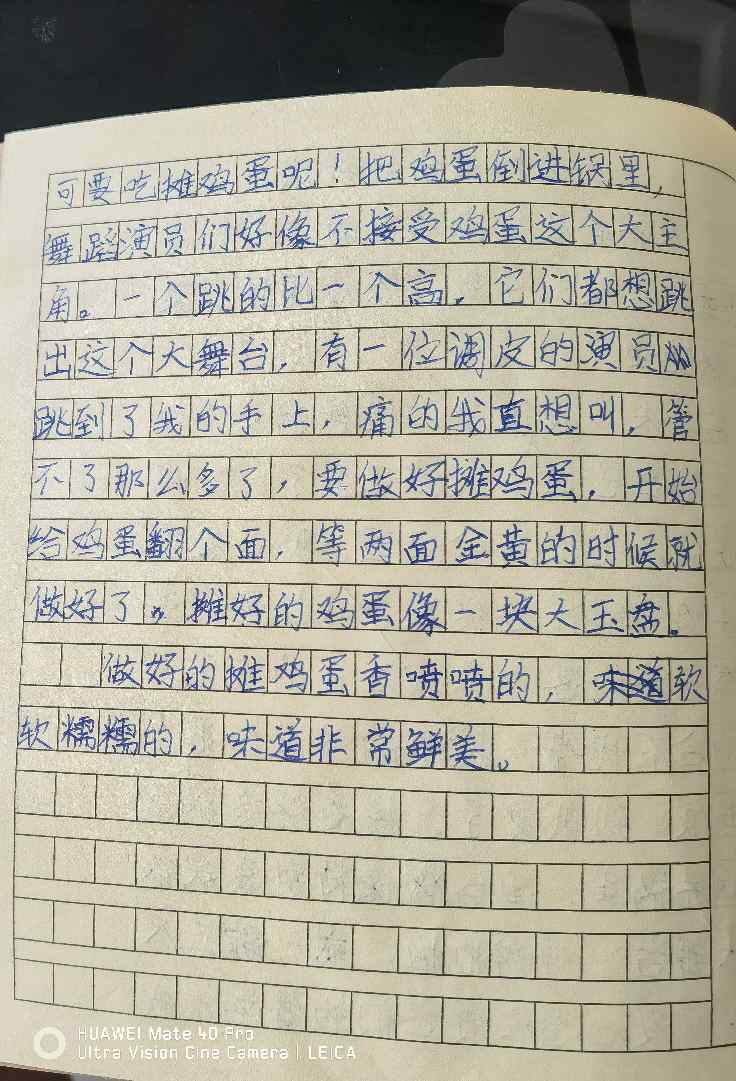 可要吃摊鸡蛋呢！把鸡蛋倒进锅里，
舞蹈演员们好像不接受鸡蛋这个大主
角。一个跳的比一个高，它们都想跳
出这个大舞台，有一位调皮的演员
跳到了我的手上，痛的我直想叫，管
不了那么多了，要做好摊鸡蛋，开始
给鸡蛋翻个面，等两面金黄的时候就
做好了。摊好的鸡蛋像一块大玉盘。
做好的摊鸡蛋香喷喷的，软
软糯糯的，味道非常鲜美。
HUAWEI Mate 40 Pro
Ultra Vision Cine Camera | LEICA